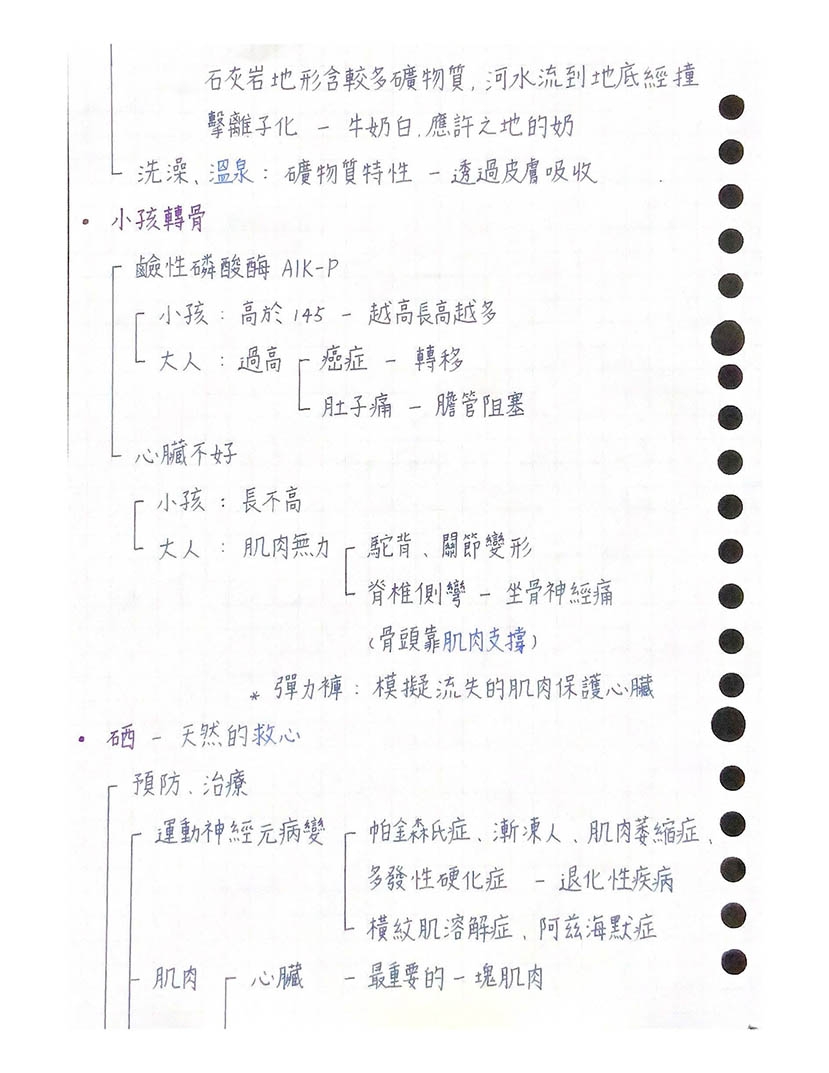 石灰岩地形含較多礦物質,河水流到地底經撞
擊離子化 - 牛奶白,應許之地的奶
洗澡、溫泉: 礦物質特性 - 透過皮膚吸收
• 小孩轉骨
鹼性磷酸酶 AlK-P
小孩: 高於145 - 越高長高越多
大人: 過高 癌症 - 轉移
肚子痛 - 膽管阻塞
心臟不好
小孩: 長不高
大人: 肌肉無力 駝背、關節變形
脊椎側彎 - 坐骨神經痛
(骨頭靠肌肉支撐)
* 彈力褲: 模擬流失的肌肉保護心臟
• 硒 - 天然的救心
預防、治療
運動神經元病變 帕金森氏症、漸凍人、肌肉萎縮症、
多發性硬化症 - 退化性疾病
橫紋肌溶解症、阿茲海默症
肌肉 心臟 - 最重要的一塊肌肉